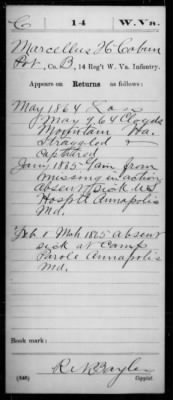 C 14 W.Va.
Marcellus H Coburn
Pvt., Co. B, 14 Reg't W. Va. Infantry.
Appears on
Returns as follows:
May 1864
May 9, 64 Cloyds
Mountain Va.
Straggled &
captured
Jany 1865 Gain from
missing in action
absent sick U.S.
Hospt Annapolis
Md.
Feb & Mch 1865 absent
sick at Camp
Parole Annapolis
Md.
Book mark:
(546) Copyist.